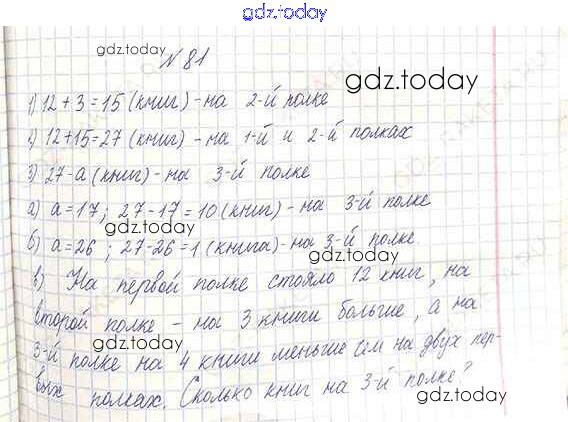 gdz.today
gdz.today № 81
gdz.today
1) 12 + 3 = 15 (книг) - на 2-й полке
2) 12+15=27 (книг) - на 1-й и 2-й полках
3) 27-а (книг) - на 3-й полке
а) а=17; 27-17=10 (книг) - на 3-й полке
gdz.today
б) а=26; 27-26=1 (книга) - на 3-й полке
gdz.today
в) На первой полке стояло 12 книг, на
второй полке - на 3 книги больше, а на
gdz.today
3-й полке на 4 книги меньше чем на двух пер-
вых полках. Сколько книг на 3-й полке?
gdz.today